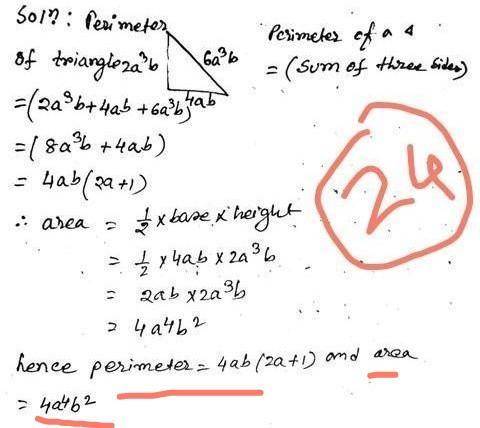 Sol?: Perimeter
of triangle 2a³b
6a³b
4ab
Perimeter of a Δ
= (Sum of three sides)
=(2a³b+4ab+6a³b)
=(8a³b+4ab)
= 4ab(2a+1)
24
∴ area = 1/2 × base × height
= 1/2 × 4ab × 2a³b
= 2ab × 2a³b
= 4a⁴b²
hence perimeter = 4ab(2a+1) and area
= 4a⁴b²